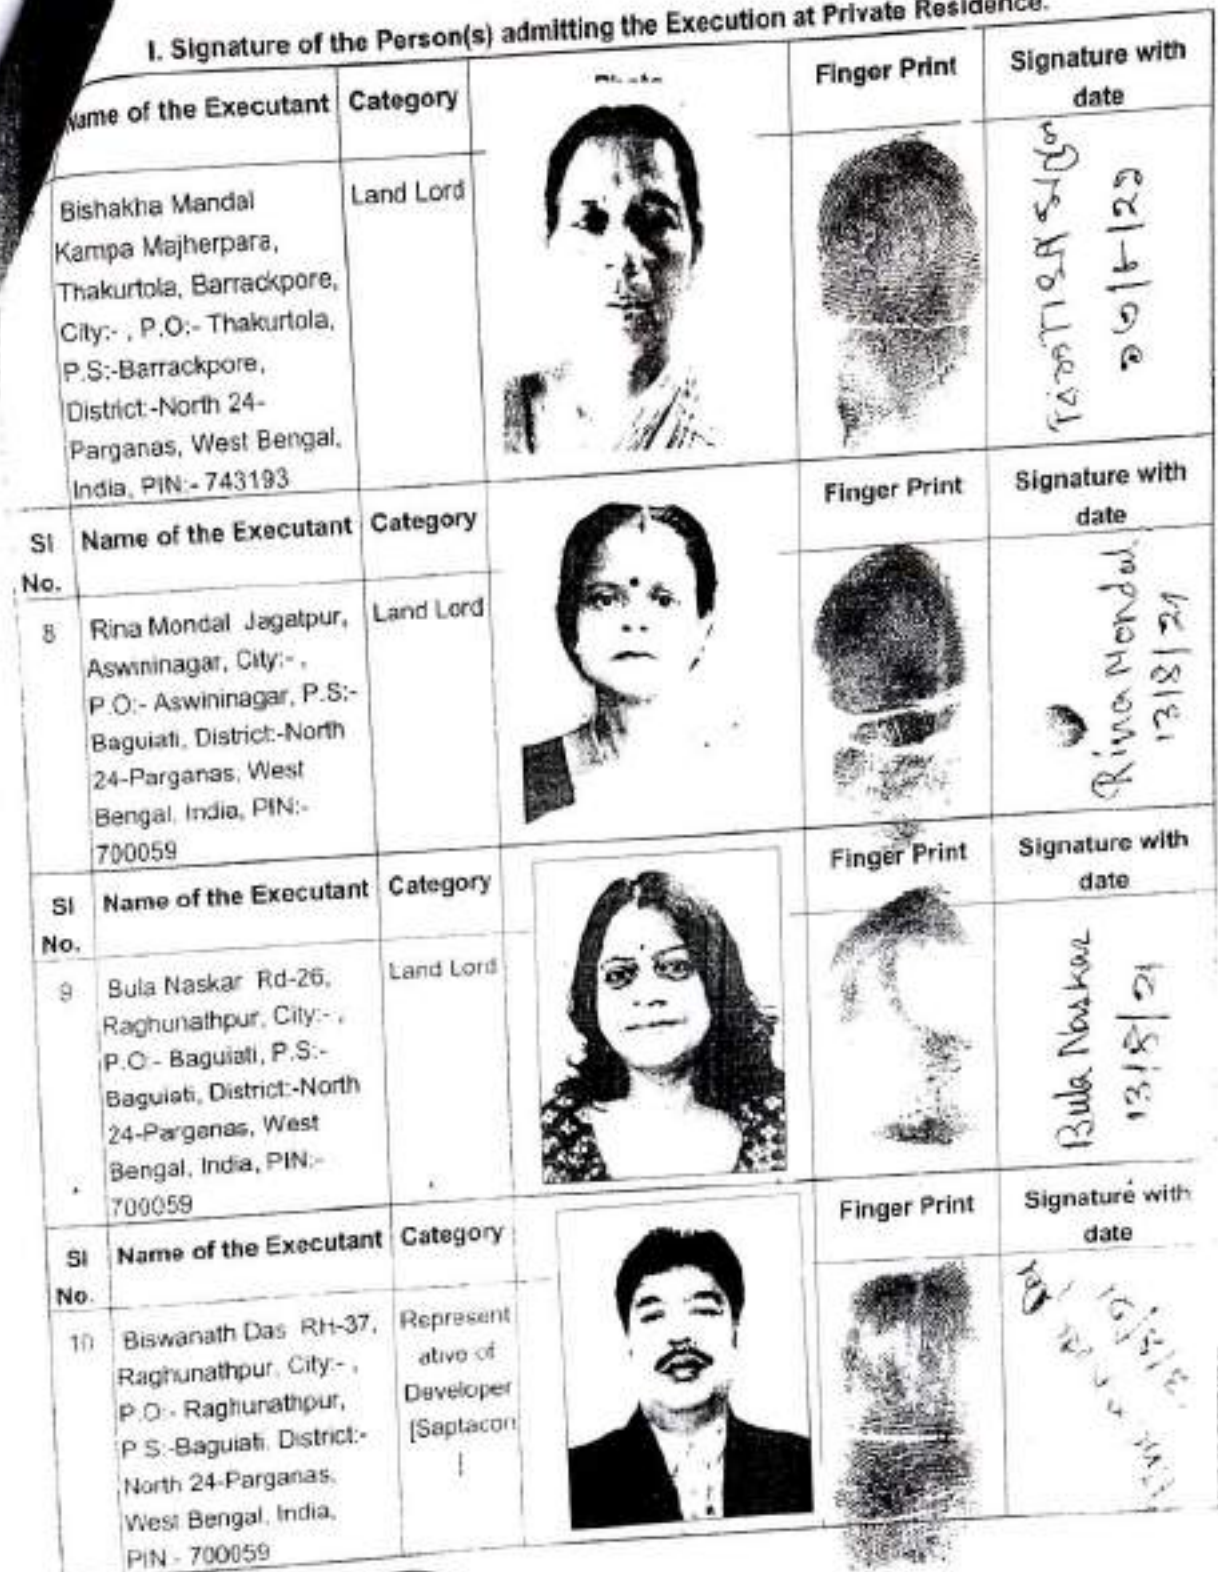 I. Signature of the Person(s) admitting the Execution at Private Residence.
Name of the Executant Category Finger Print Signature with
date
Bishakha Mandal Land Lord
Kampa Majherpara,
Thakurtola, Barrackpore,
City:- , P.O:- Thakurtola,
P.S:-Barrackpore,
District:-North 24-
Parganas, West Bengal,
India, PIN:- 743193
Sl Name of the Executant Category Finger Print Signature with
No. date
8 Rina Mondal Jagatpur, Land Lord
Aswininagar, City:- ,
P.O:- Aswininagar, P.S:-
Baguiati, District:-North
24-Parganas, West
Bengal, India, PIN:-
700059
Rina Mondal
13/8/21
Sl Name of the Executant Category Finger Print Signature with
No. date
9 Bula Naskar Rd-26, Land Lord
Raghunathpur, City:- ,
P.O:- Baguiati, P.S:-
Baguiati, District:-North
24-Parganas, West
Bengal, India, PIN:-
700059
Bula Naskar
13/8/21
Sl Name of the Executant Category Finger Print Signature with
No. date
10 Biswanath Das RH-37, Represent
Raghunathpur, City:- , ative of
P.O:- Raghunathpur, Developer
P.S:-Baguiati, District:- [Saptacon
North 24-Parganas, ]
West Bengal, India,
PIN:- 700059